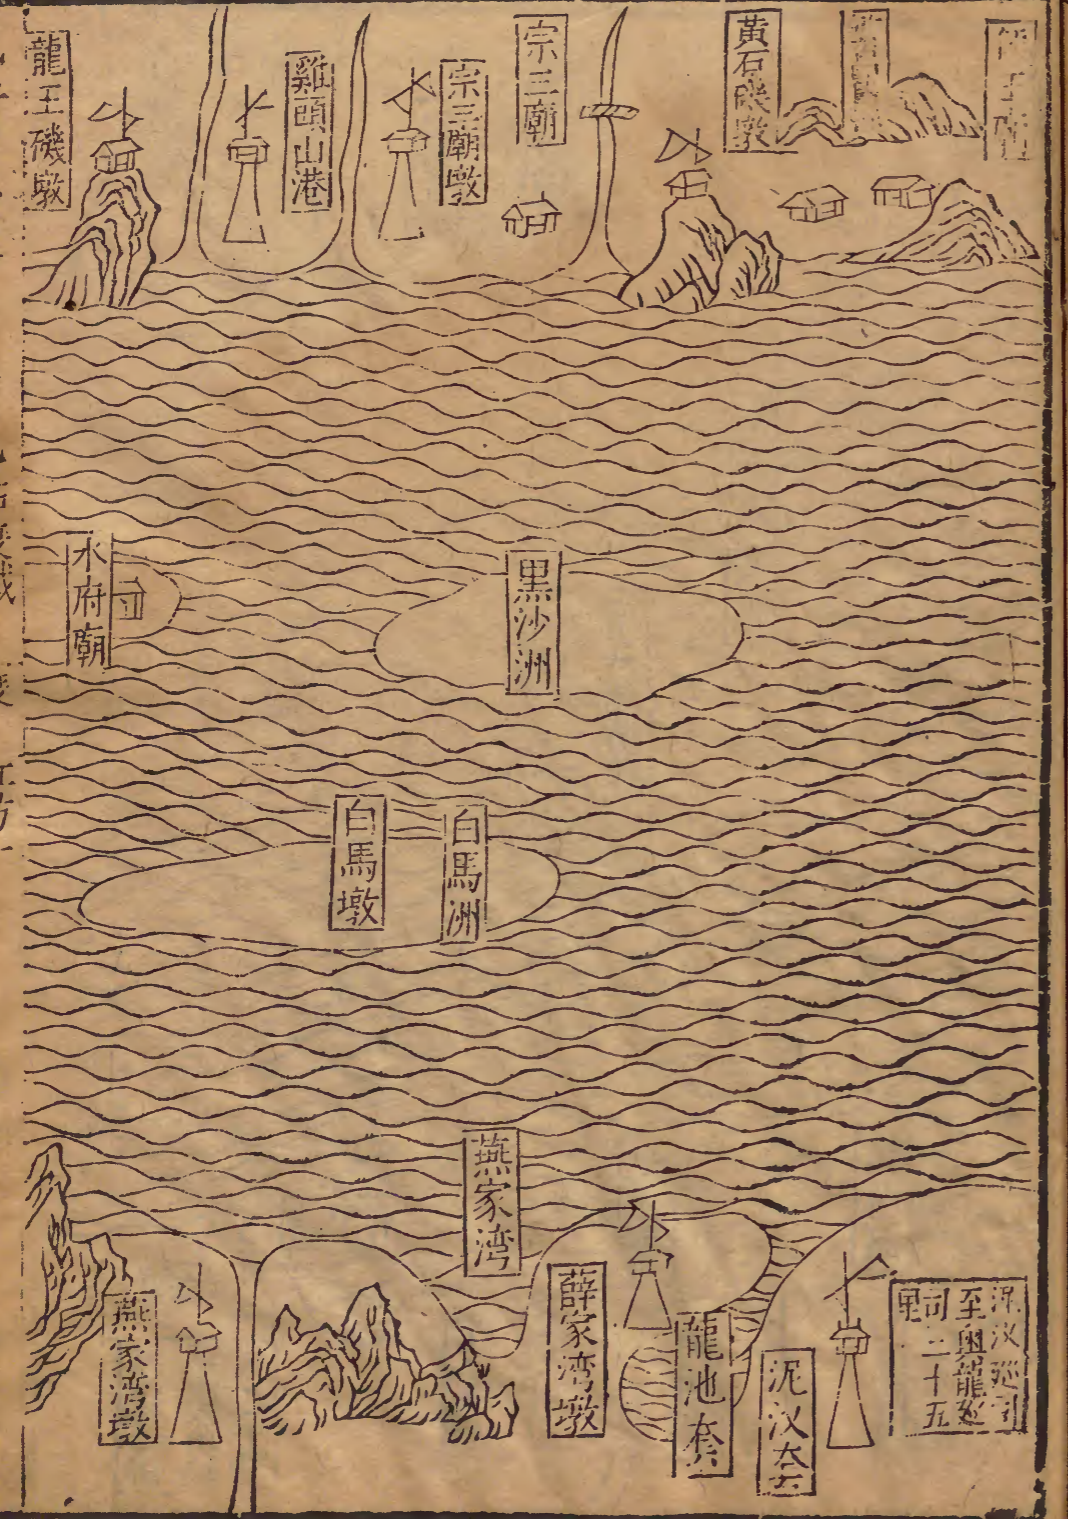 黃石磯墩
宗三廟
宗三廟墩
雞頭山港
龍王磯墩
黒沙洲
水府廟
白馬洲
白馬墩
燕家湾
泥汊巡司
至奥龍廵
司二十五
里
泥汊套
龍池套
薛家湾墩
燕家湾墩